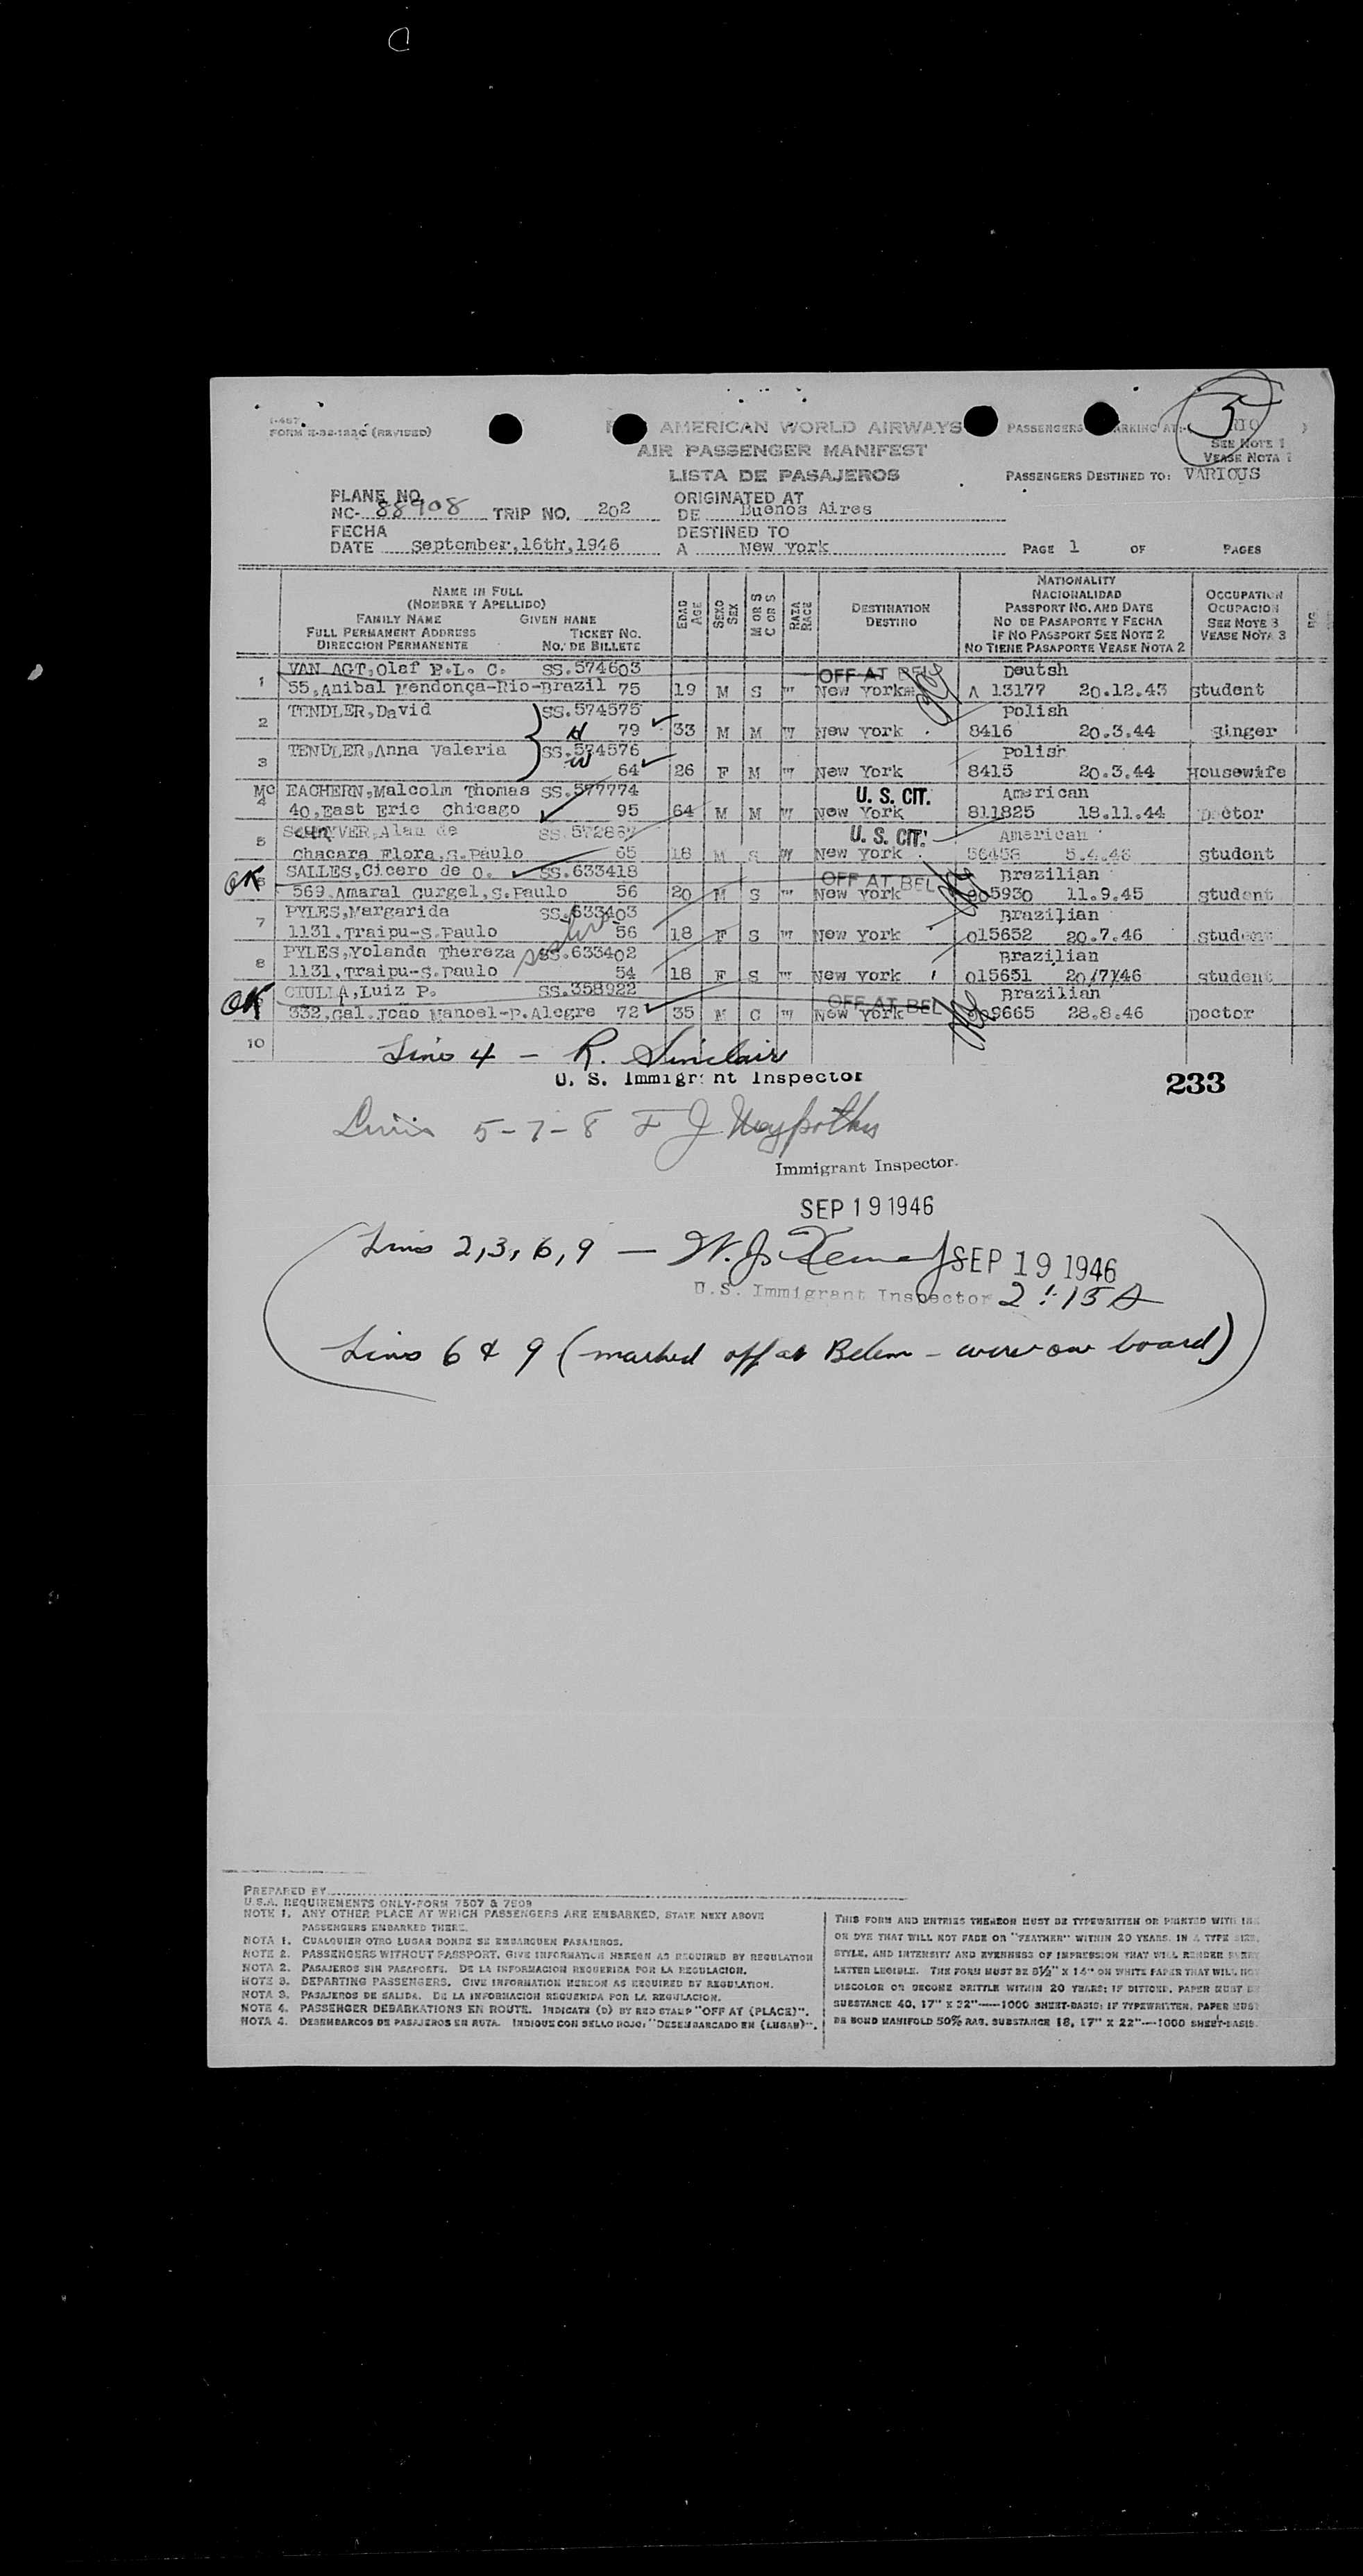 C
I-467
FORM (REVISED)
AMERICAN WORLD AIRWAYS
PASSENGERS AT: RIO
5
SEE NOTE 1
VEASE NOTA 1
AIR PASSENGER MANIFEST
LISTA DE PASAJEROS
PASSENGERS DESTINED TO: VARIOUS
PLANE NO.
NC- 88908 TRIP NO. 202
ORIGINATED AT
DE Buenos Aires
FECHA
DATE September,16th,1946
DESTINED TO
A New York
PAGE 1 OF PAGES
NAME IN FULL
(NOMBRE Y APELLIDO)
FAMILY NAME GIVEN NAME
FULL PERMANENT ADDRESS TICKET NO.
DIRECCION PERMANENTE NO. DE BILLETE
EDAD AGE
SEXO SEX
M OR S C OR S
RAZA RACE
DESTINATION
DESTINO
NATIONALITY
NACIONALIDAD
PASSPORT NO. AND DATE
NO DE PASAPORTE Y FECHA
IF NO PASSPORT SEE NOTE 2
NO TIENE PASAPORTE VEASE NOTA 2
OCCUPATION
OCUPACION
SEE NOTE 3
VEASE NOTA 3
1 VAN AGT,Olaf P.L. C. SS.574603 OFF AT BEL Deutsh
55,Anibal Mendonça-Rio-Brazil 75 19 M S W New York A 13177 20.12.43 Student
2 TENDLER,David SS.574575 Polish
H 79 33 M M W New York 8416 20.3.44 Singer
3 TENDLER,Anna Valeria SS.574576 Polish
W 64 26 F M W New York 8415 20.3.44 Housewife
4 Mc EACHERN,Malcolm Thomas SS.577774 U. S. CIT. American
40,East Eric Chicago 95 64 M M W New York 811825 18.11.44 Doctor
5 SCHRYVER,Alan de SS.572867 U. S. CIT. American
Chacara Flora,S.Paulo 65 18 M S W New York 56458 5.4.46 Student
OK 6 SALLES,Cicero de O. SS.633418 OFF AT BEL Brazilian
569,Amaral Gurgel,S.Paulo 56 20 M S W New York 005930 11.9.45 Student
7 PYLES,Margarida SS.633403 Brazilian
1131,Traipu-S.Paulo 56 18 F S W New York 015652 20.7.46 Student
sisters
8 PYLES,Yolanda Thereza SS.633402 Brazilian
1131,Traipu-S.Paulo 54 18 F S W New York 015651 20/7/46 Student
OK 9 CIULLA,Luiz P. SS.358922 OFF AT BEL Brazilian
332,Gal.João Manoel-P.Alegre 72 35 M C W New York 009665 28.8.46 Doctor
10
Line 4 - R. Sinclair
U. S. Immigrant Inspector
233
Lines 5-7-8 F J
Immigrant Inspector.
SEP 19 1946
Lines 2,3,6,9 — W. J. SEP 19 1946
U.S. Immigrant Inspector 2:15 A
Lines 6 & 9 (marked off at Belem - were on board)
PREPARED BY
U.S.A. REQUIREMENTS ONLY-FORM 7507 & 7509
NOTE 1. ANY OTHER PLACE AT WHICH PASSENGERS ARE EMBARKED, STATE NEXT ABOVE
PASSENGERS EMBARKED THERE.
NOTA 1. CUALQUIER OTRO LUGAR DONDE SE EMBARQUEN PASAJEROS.
NOTE 2. PASSENGERS WITHOUT PASSPORT, GIVE INFORMATION HEREON AS REQUIRED BY REGULATION
NOTA 2. PASAJEROS SIN PASAPORTE. DE LA INFORMACION REQUERIDA POR LA REGULACION.
NOTE 3. DEPARTING PASSENGERS. GIVE INFORMATION HEREON AS REQUIRED BY REGULATION.
NOTA 3. PASAJEROS DE SALIDA. DE LA INFORMACION REQUERIDA POR LA REGULACION.
NOTE 4. PASSENGER DEBARKATIONS EN ROUTE. INDICATE (D) BY RED STAMP "OFF AT (PLACE)".
NOTA 4. DESEMBARCOS DE PASAJEROS EN RUTA. INDIQUE CON SELLO ROJO: "DESEMBARCADO EN (LUGAR)".
THIS FORM AND ENTRIES THEREON MUST BE TYPEWRITTEN OR PRINTED WITH INK
OR DYE THAT WILL NOT FADE OR "FEATHER" WITHIN 20 YEARS, IN A TYPE SIZE,
STYLE, AND INTENSITY AND EVENNESS OF IMPRESSION THAT WILL RENDER EVERY
LETTER LEGIBLE. THE FORM MUST BE 8½" X 14" ON WHITE PAPER THAT WILL NOT
DISCOLOR OR BECOME BRITTLE WITHIN 20 YEARS: IF DITTOED, PAPER MUST BE
SUBSTANCE 40, 17" X 22"----1000 SHEET-BASIS: IF TYPEWRITTEN, PAPER MUST
BE BOND MANIFOLD 50% RAG, SUBSTANCE 18, 17" X 22"---1000 SHEET-BASIS.